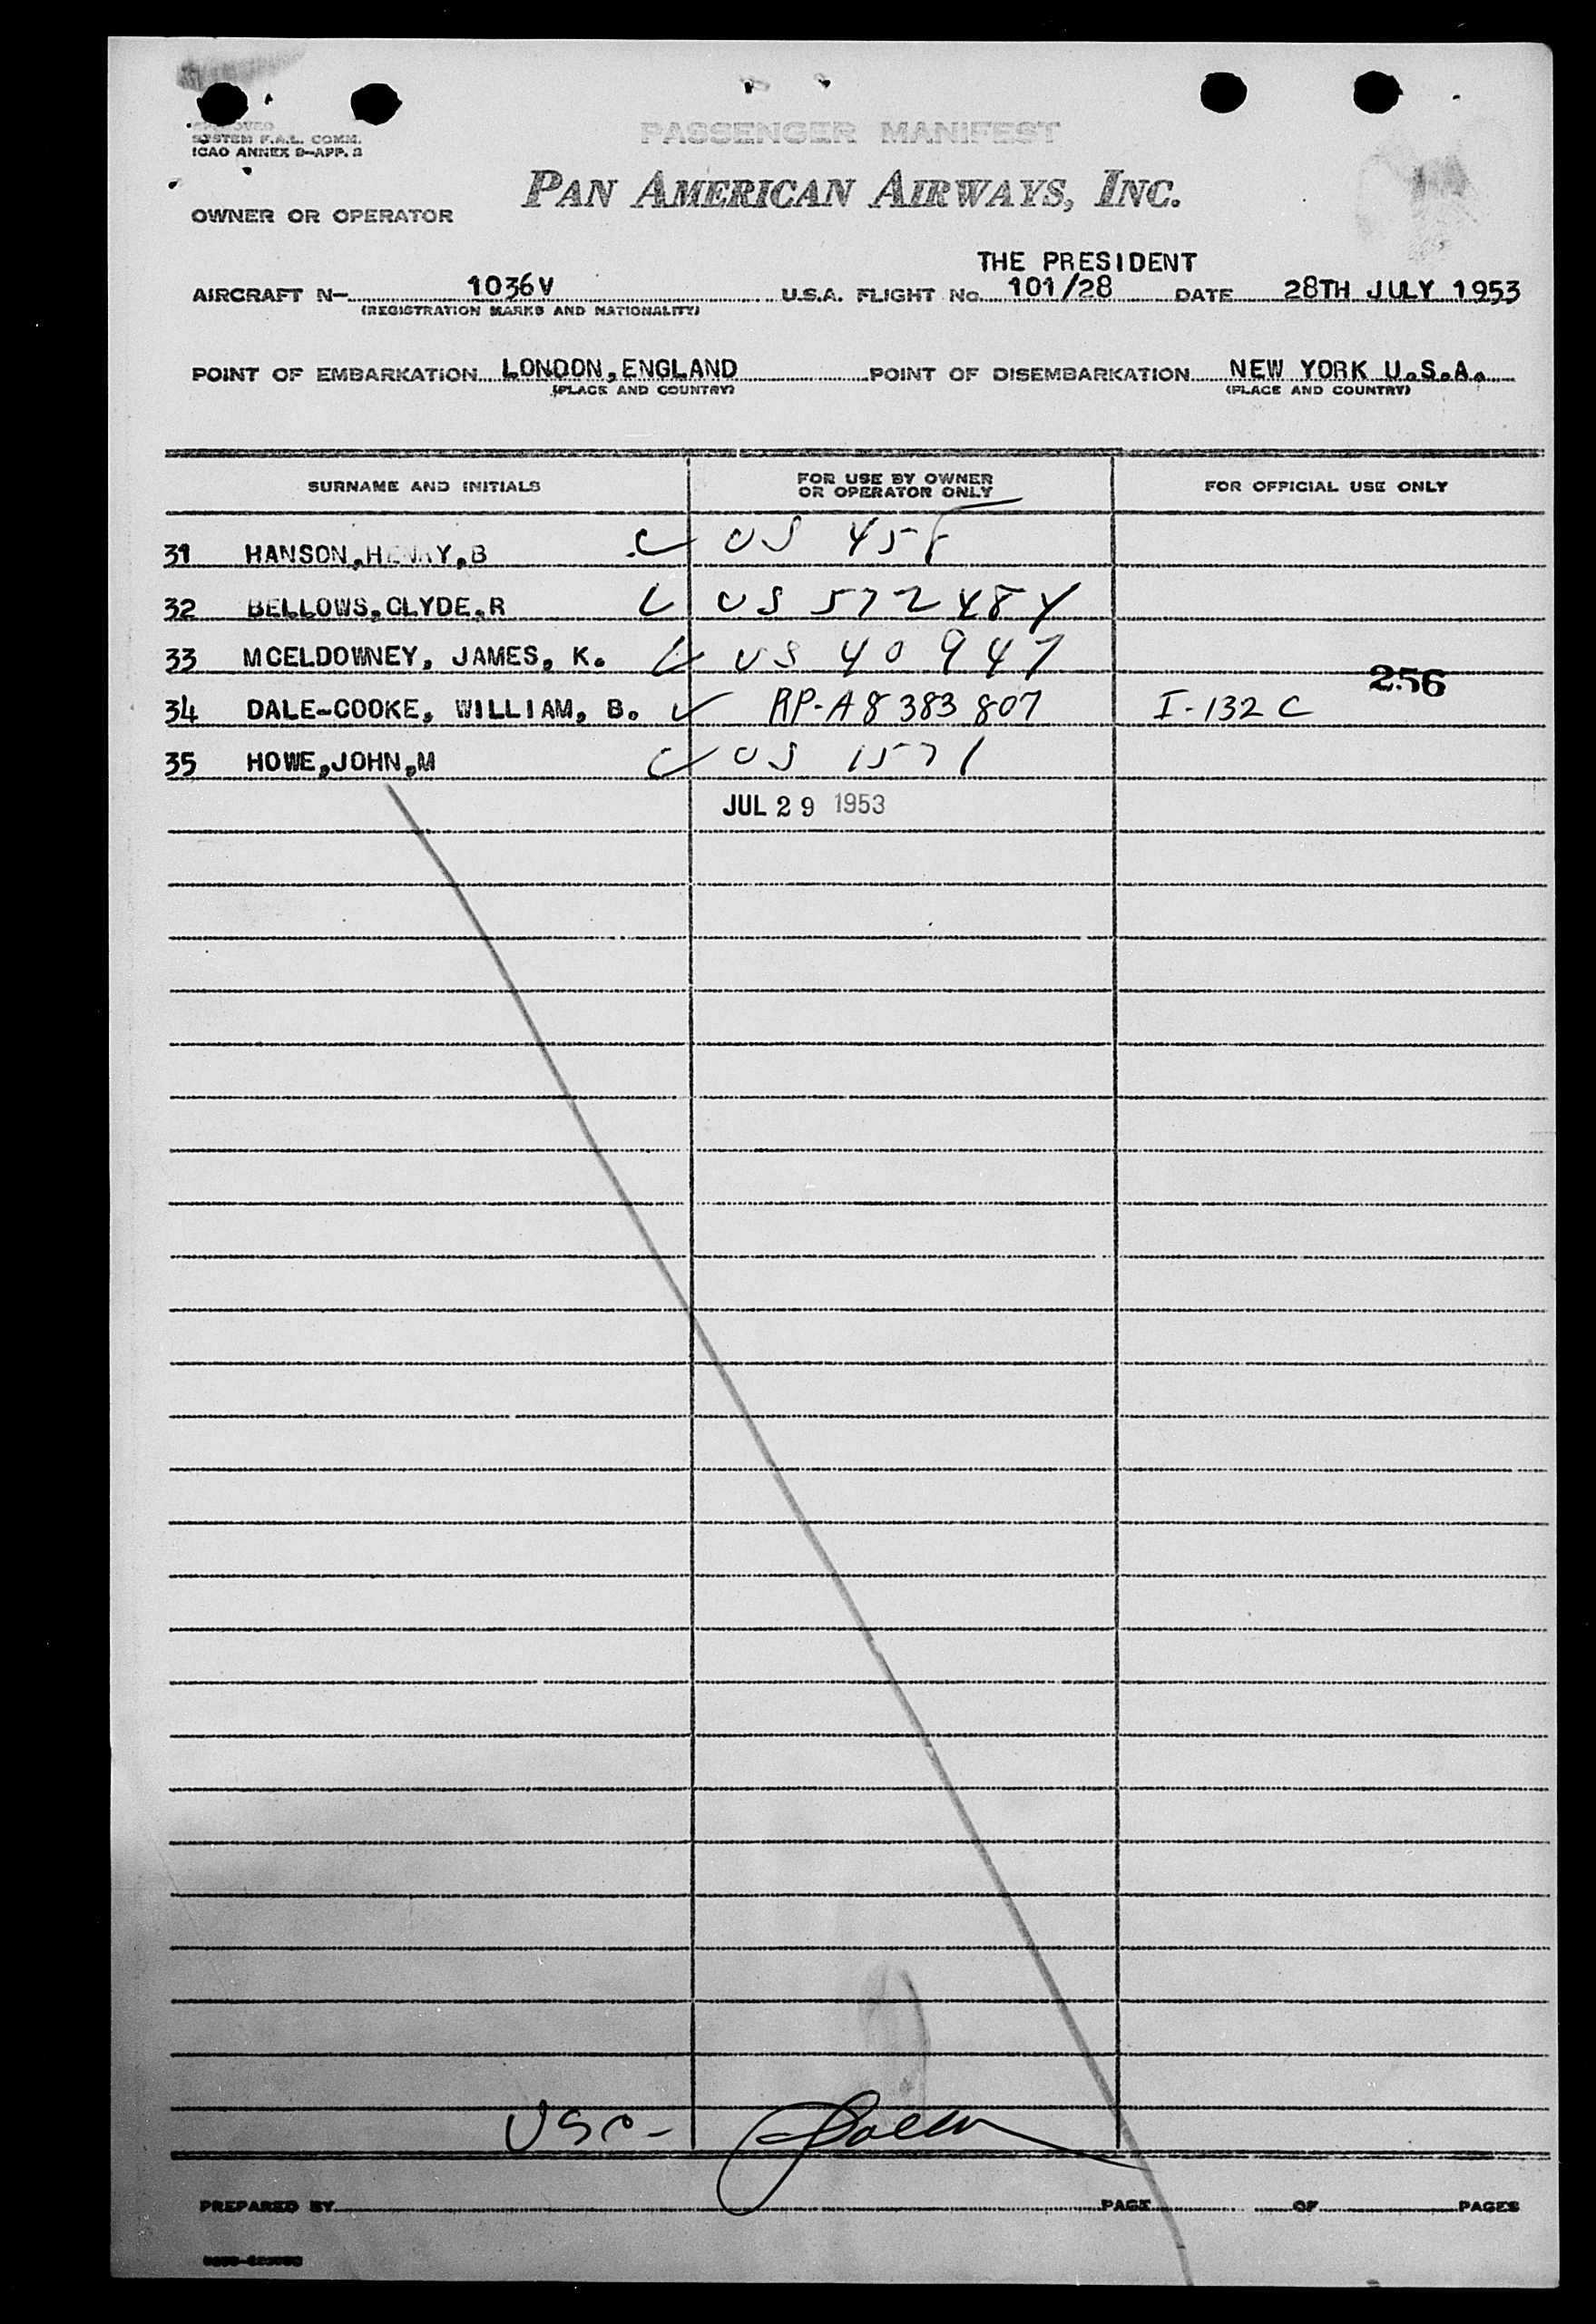 SYSTEM F.A.L. COMM.
ICAO ANNEX 9-APP. 3
PASSENGER MANIFEST
PAN AMERICAN AIRWAYS, INC.
OWNER OR OPERATOR
THE PRESIDENT
AIRCRAFT N- 1036V U.S.A. FLIGHT No. 101/28 DATE 28TH JULY 1953
(REGISTRATION MARKS AND NATIONALITY)
POINT OF EMBARKATION LONDON, ENGLAND POINT OF DISEMBARKATION NEW YORK U.S.A.
(PLACE AND COUNTRY) (PLACE AND COUNTRY)
SURNAME AND INITIALS FOR USE BY OWNER OR OPERATOR ONLY FOR OFFICIAL USE ONLY
31 HANSON, HENRY, B US
32 BELLOWS, CLYDE, R US 572484
33 MCELDOWNEY, JAMES, K. US 40947
256
34 DALE-COOKE, WILLIAM, B. RP-A8383807 I-132C
35 HOWE, JOHN, M US 1571
JUL 29 1953
PREPARED BY PAGE OF PAGES